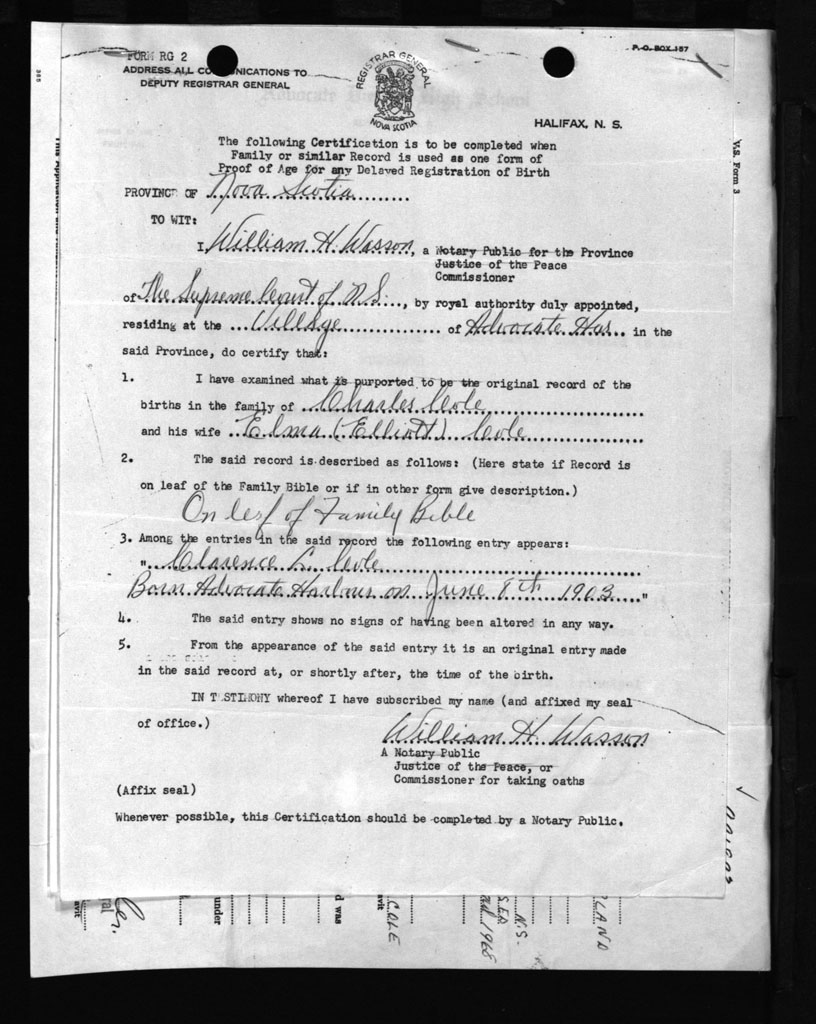 FORM RG 2
P. O. BOX 157
ADDRESS ALL COMMUNICATIONS TO
DEPUTY REGISTRAR GENERAL
REGISTRAR GENERAL
NOVA SCOTIA
HALIFAX, N. S.
The following Certification is to be completed when
Family or similar Record is used as one form of
Proof of Age for any Delayed Registration of Birth
PROVINCE OF Nova Scotia
TO WIT:
I, William H. Wasson, a Notary Public for the Province
Justice of the Peace
Commissioner
of The Supreme Court of N.S., by royal authority duly appointed,
residing at the Village of Advocate Har. in the
said Province, do certify that:
1. I have examined what is purported to be the original record of the
births in the family of Charles Cole
and his wife Elma (Elliott) Cole
2. The said record is described as follows: (Here state if Record is
on leaf of the Family Bible or if in other form give description.)
On leaf of Family Bible
3. Among the entries in the said record the following entry appears:
" Clarence L. Cole
Born Advocate Harbour on June 8th 1903 "
4. The said entry shows no signs of having been altered in any way.
5. From the appearance of the said entry it is an original entry made
in the said record at, or shortly after, the time of the birth.
IN TESTIMONY whereof I have subscribed my name (and affixed my seal
of office.)
William H. Wasson
A Notary Public
Justice of the Peace, or
Commissioner for taking oaths
(Affix seal)
Whenever possible, this Certification should be completed by a Notary Public.
V.S. Form 3
under
d was
COLE
N.S.
1968